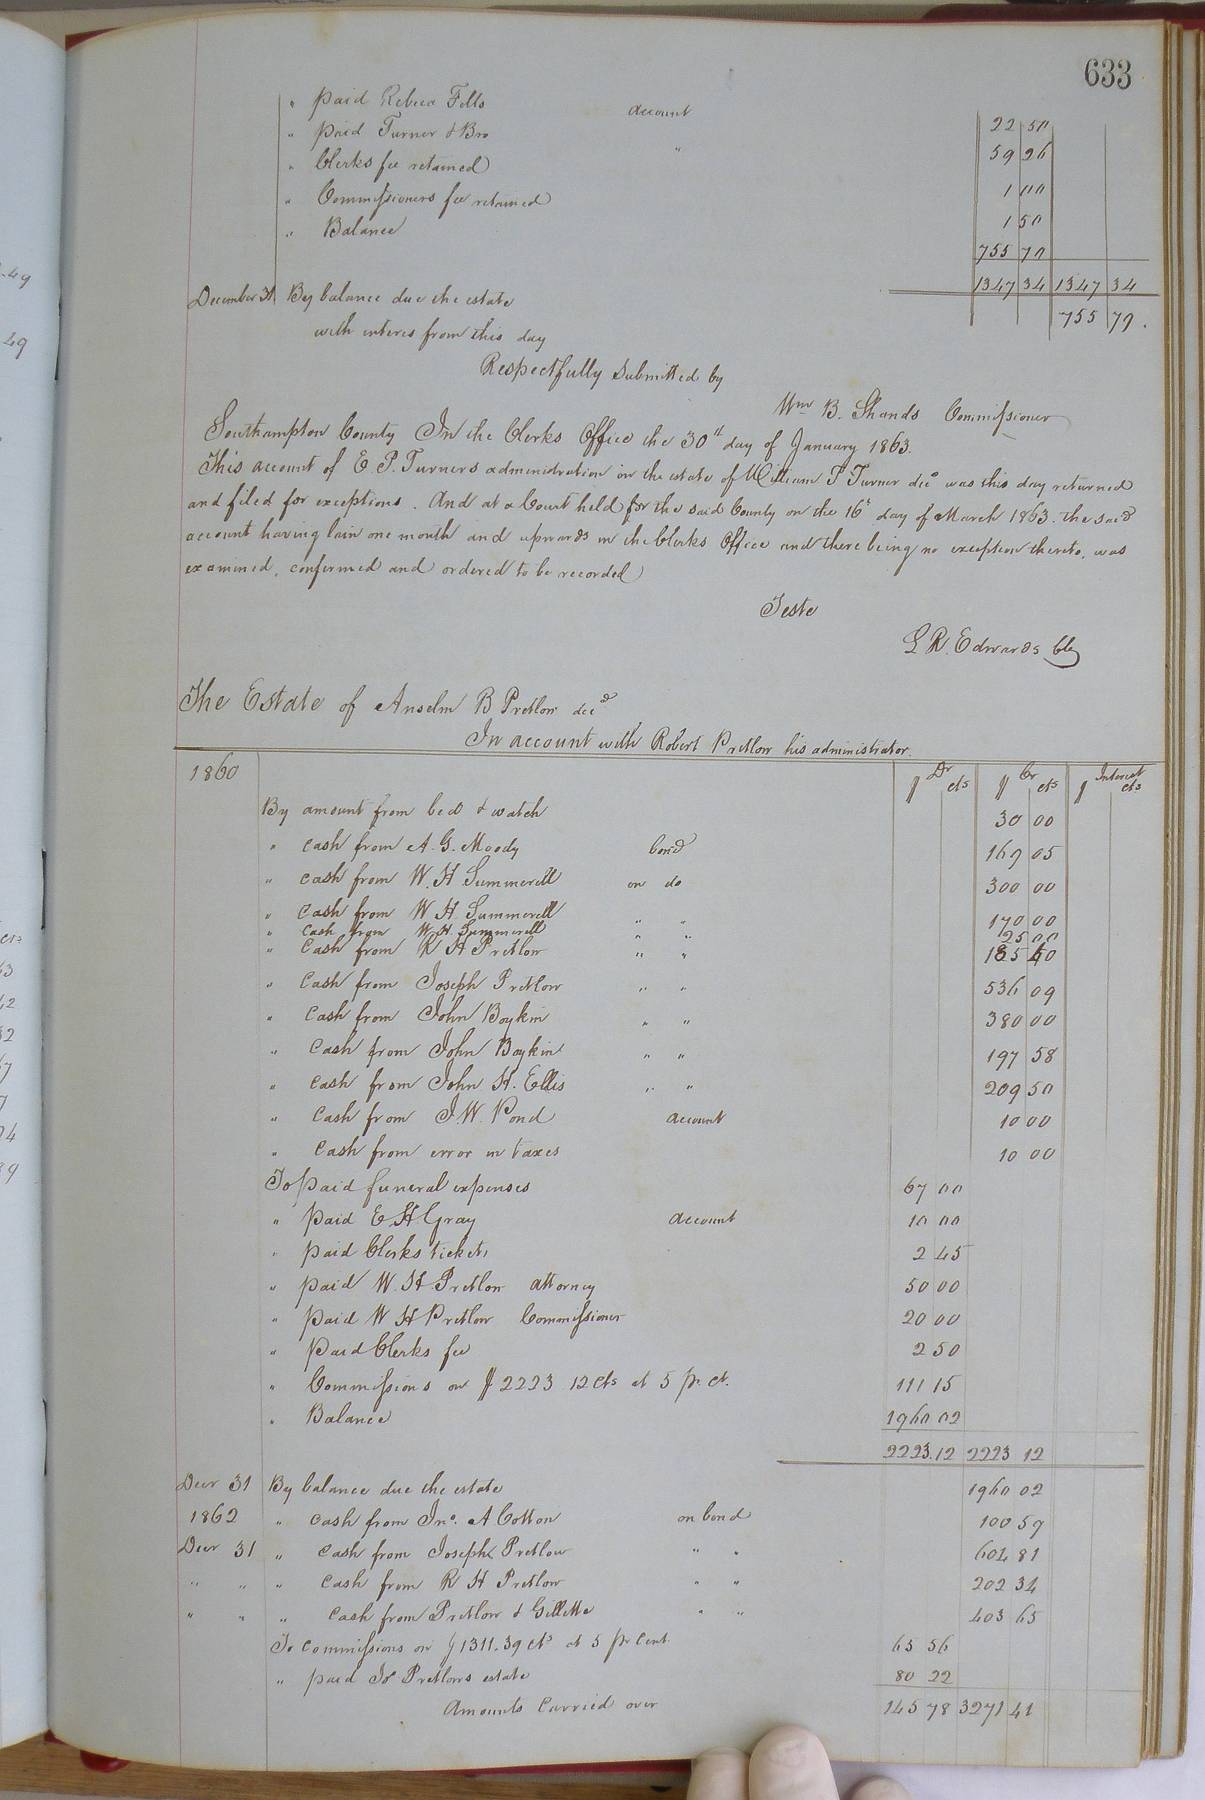 633
" paid Rebeca Felts account 22 50
" paid Turner & Bro " 59 26
" Clerks fee retained 1 00
" Commissioners fee retained 1 50
" Balance 755 79
1347 34 1347 34
December 31 By balance due the estate 755 79.
with interes from this day
Respectfully submitted by
Wm B. Shands Commissioner
Southampton County In the Clerks Office the 30th day of January 1863.
This account of E P. Turners administration on the estate of William P Turner decd was this day returned
and filed for exceptions. And at a Court held for the said County on the 16th day of March 1863. the said
account having lain one month and upwards in the Clerks Office and there being no exception thereto, was
examined, confirmed and ordered to be recorded
Teste
L R. Edwards Clk
The Estate of Anselm B Pretlow decd
In account with Robert Pretlow his administrator.
1860 $ Dr cts $ Cr cts $ Interest cts
By amount from bed & watch 30 00
" cash from A. G. Moody bond 169 05
" cash from W. H Summerell on do 300 00
" cash from W H. Summerell " " 170 00
" cash from W. H. Summerell " " 25 00
" cash from R H Pretlow " " 185 40
" cash from Joseph Pretlow " " 536 09
" cash from John Boykin " " 380 00
" cash from John Boykin " " 197 58
" cash from John H. Ellis " " 209 50
" cash from J. W. Pond account 10 00
" cash from error in taxes 10 00
To paid funeral expenses 67 00
" paid E H Gray account 10 00
" paid Clerks tickets 2 45
" paid W. H. Pretlow attorney 50 00
" paid W H Pretlow Commissioner 20 00
" paid Clerks fee 2 50
" Commissions on $ 2223 12 cts at 5 pr. ct. 111 15
" Balance 1960 02
2223.12 2223 12
Decr 31 By balance due the estate 1960 02
1862 " cash from Jno. A Cotton on bond 100 59
Decr 31 " cash from Joseph Pretlow " " 604 81
" " " cash from R H Pretlow " " 202 34
" " " cash from Pretlow & Gillette " " 403 65
To commissions on $ 1311.39 cts at 5 pr Cent. 65 56
" paid Js Pretlows estate 80 22
Amounts carried over 145 78 3271 41